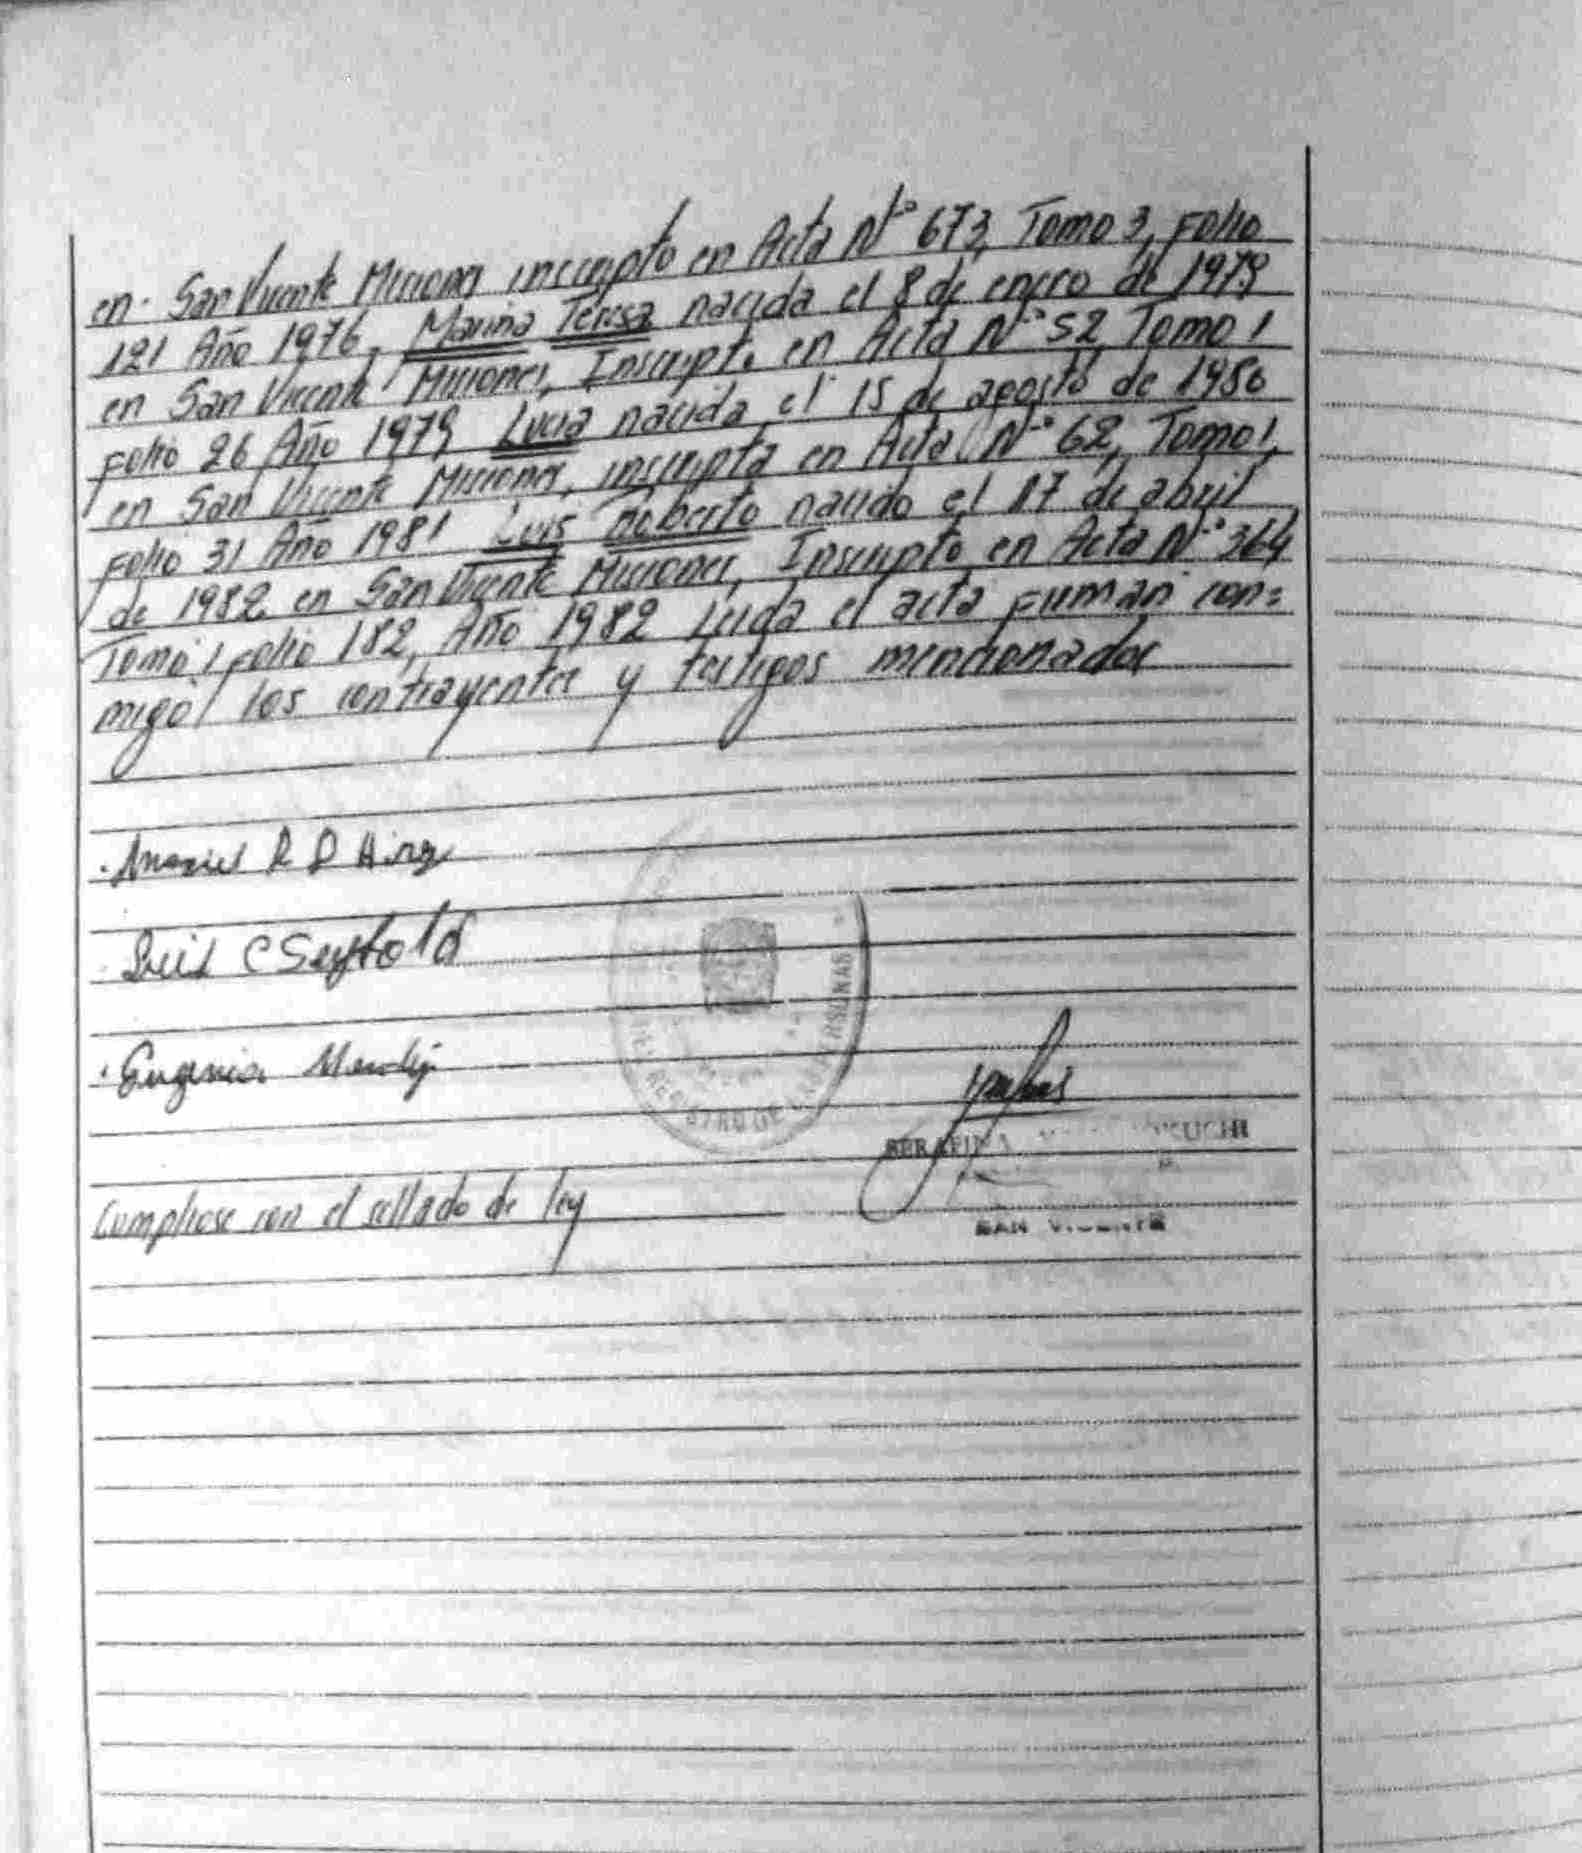 en San Vicente Misiones inscripto en Acta N° 673, Tomo 3, Folio
121 Año 1976, Marina Teresa nacida el 8 de enero de 1979
en San Vicente Misiones, Inscript. en Acta N° 52 Tomo 1
Folio 26 Año 1979 Lucia nacida el 15 de agosto de 1980
en San Vicente Misiones, inscripta en Acta N° 62, Tomo 1,
Folio 31 Año 1981 Luis Roberto nacido el 17 de abril
de 1982 en San Vicente Misiones, Inscripto en Acta N° 364
Tomo 1 Folio 182, Año 1982 Leida el acta Firman con=
migo los contrayentes y testigos mencionados
R D
Luis C Seybold
Eugenia
REGISTRO DE LAS PERSONAS
SERAFINA
SAN VICENTE
Cumplase con el sellado de ley